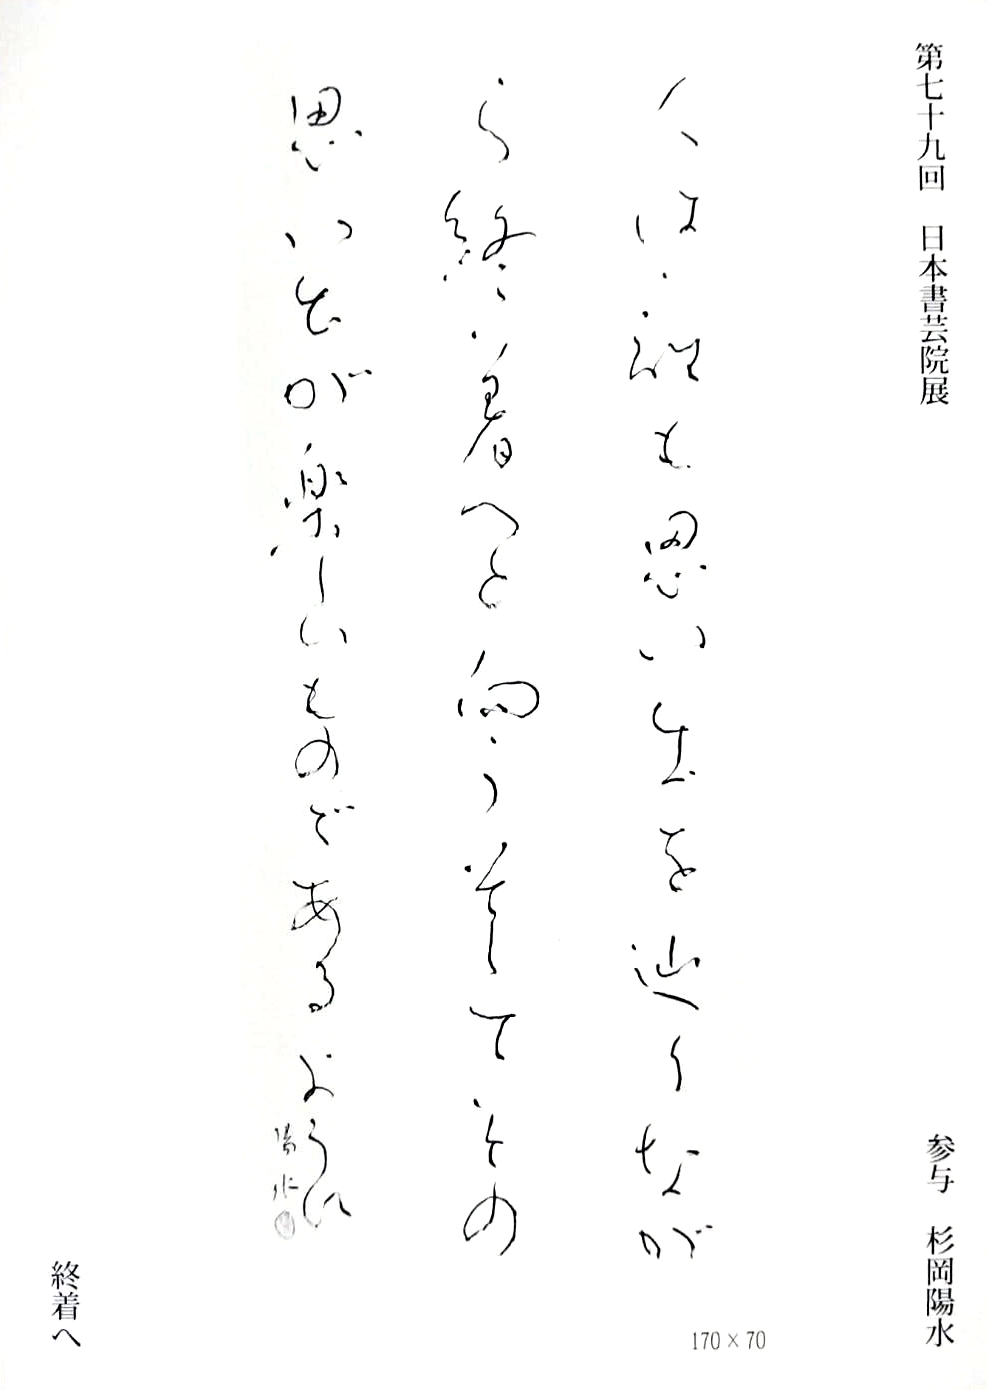 第七十九回　日本書芸院展
参与　杉岡陽水
人は誰も思い出を辿りなが
ら終着へと向うそしてその
思い出が楽しいものであるように
陽水
170×70
終着へ